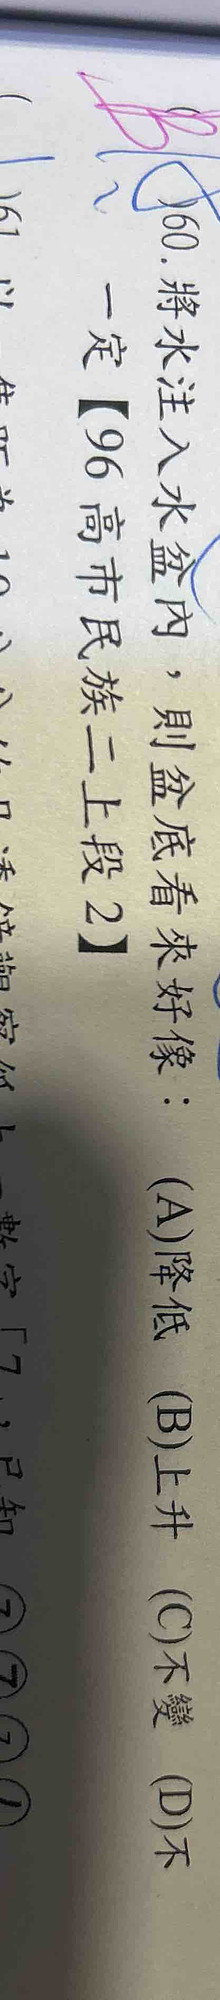 B
)60.將水注入水盆內，則盆底看來好像： (A)降低 (B)上升 (C)不變 (D)不
一定【96 高市民族二上段 2】
)61.